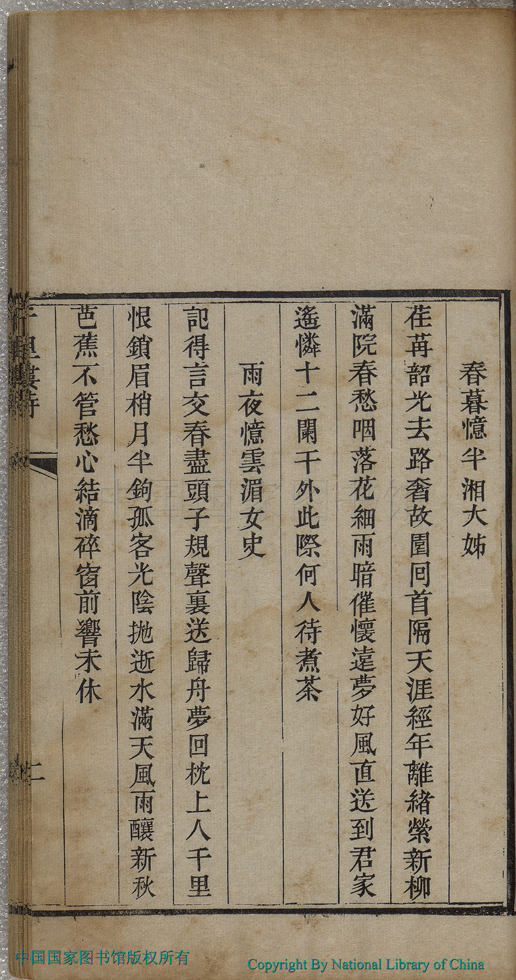 春暮憶半湘大姊
荏苒韶光去路奢故園回首隔天涯經年離緒縈新柳
滿院春愁咽落花細雨暗催懷遠夢好風直送到君家
遙憐十二闌干外此際何人待煮茶
雨夜憶雲湄女史
記得言交春盡頭子規聲裏送歸舟夢回枕上人千里
恨鎖眉梢月半鉤孤客光陰拋逝水滿天風雨釀新秋
芭蕉不管愁心結滴碎窗前響未休
二
中国国家图书馆版权所有
Copyright By National Library of China